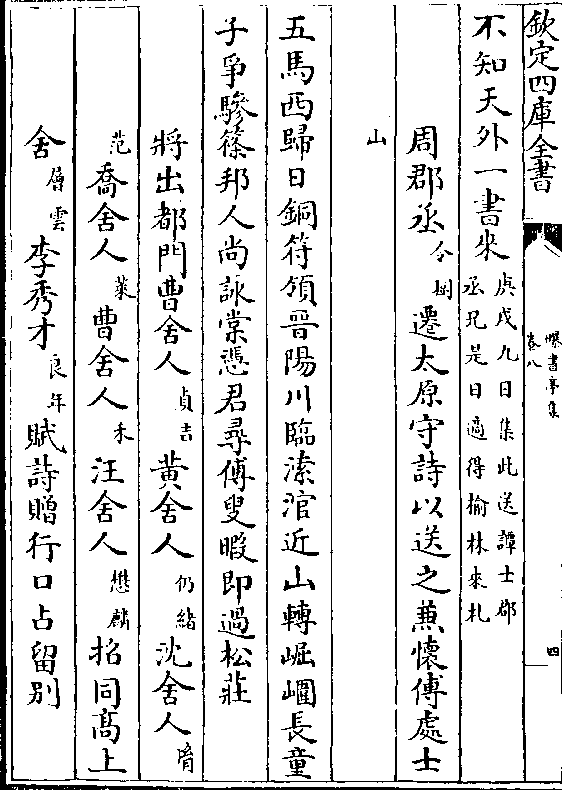 欽定四庫全書
曝書亭集
卷八
四
不知天外一書來庚戌九日集此送譚士郡
丞兄是日適得榆林來札
周郡丞令樹遷太原守詩以送之兼懷傅處士
山
五馬西歸日銅符領晉陽川臨溹涫近山轉崛長童
子爭驂篠邦人尚詠棠憑君尋傅叟暇即過松莊
將出都門曹舍人貞吉黃舍人仍緒沈舍人胤
范喬舍人萊曹舍人禾汪舍人懋麟招同髙上
舍層雲李秀才良年賦詩贈行口占留別